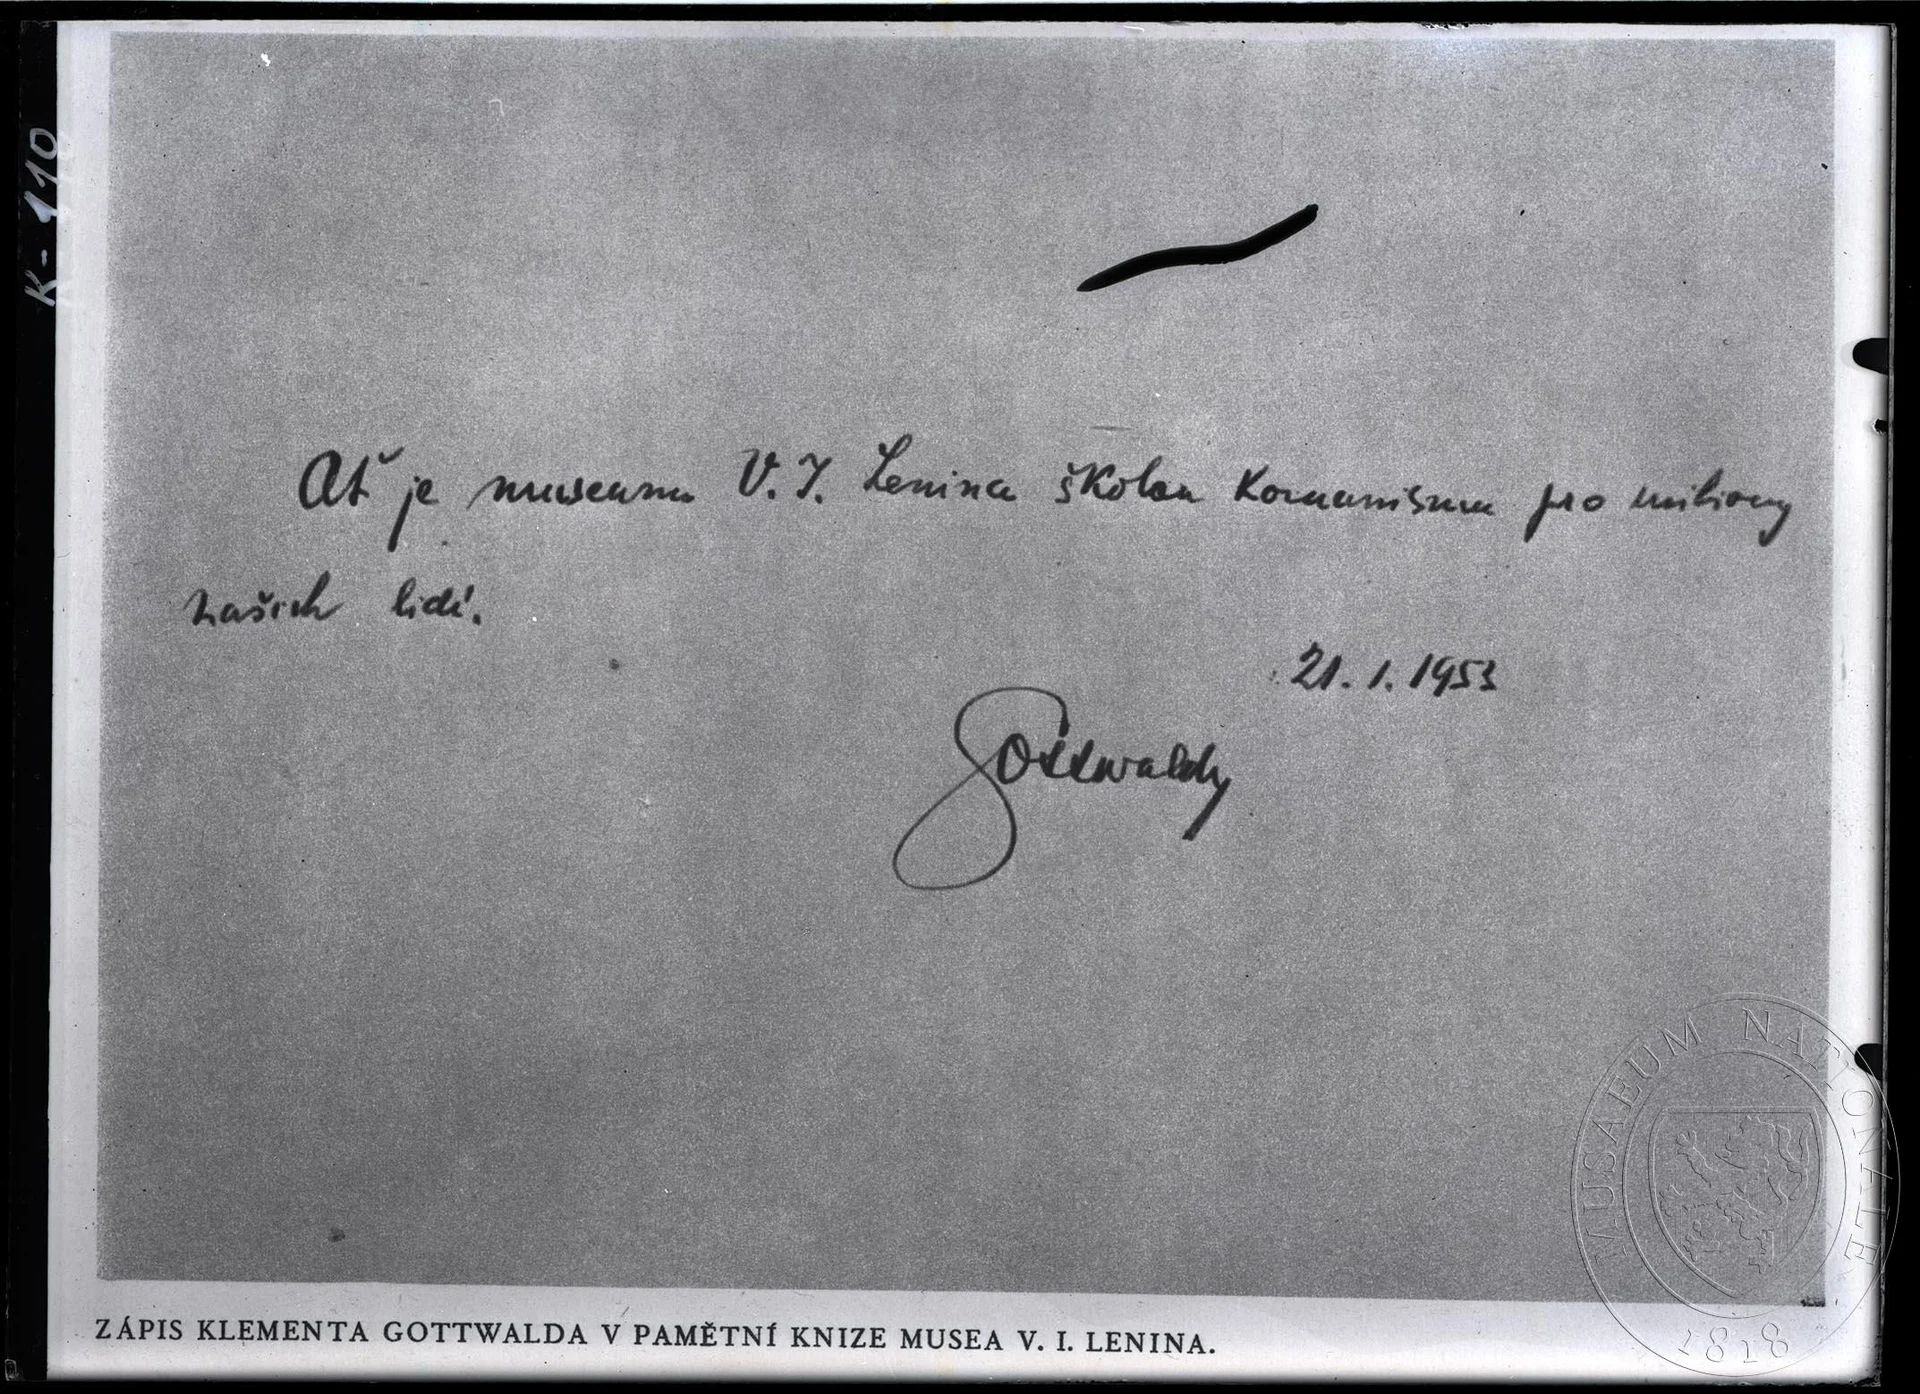 K-110
Ať je museum V. I. Lenina školou komunismu pro miliony
našich lidí.
21. 1. 1953
Gottwald
ZÁPIS KLEMENTA GOTTWALDA V PAMĚTNÍ KNIZE MUSEA V. I. LENINA.
MUSAEUM NATIONALE
1818